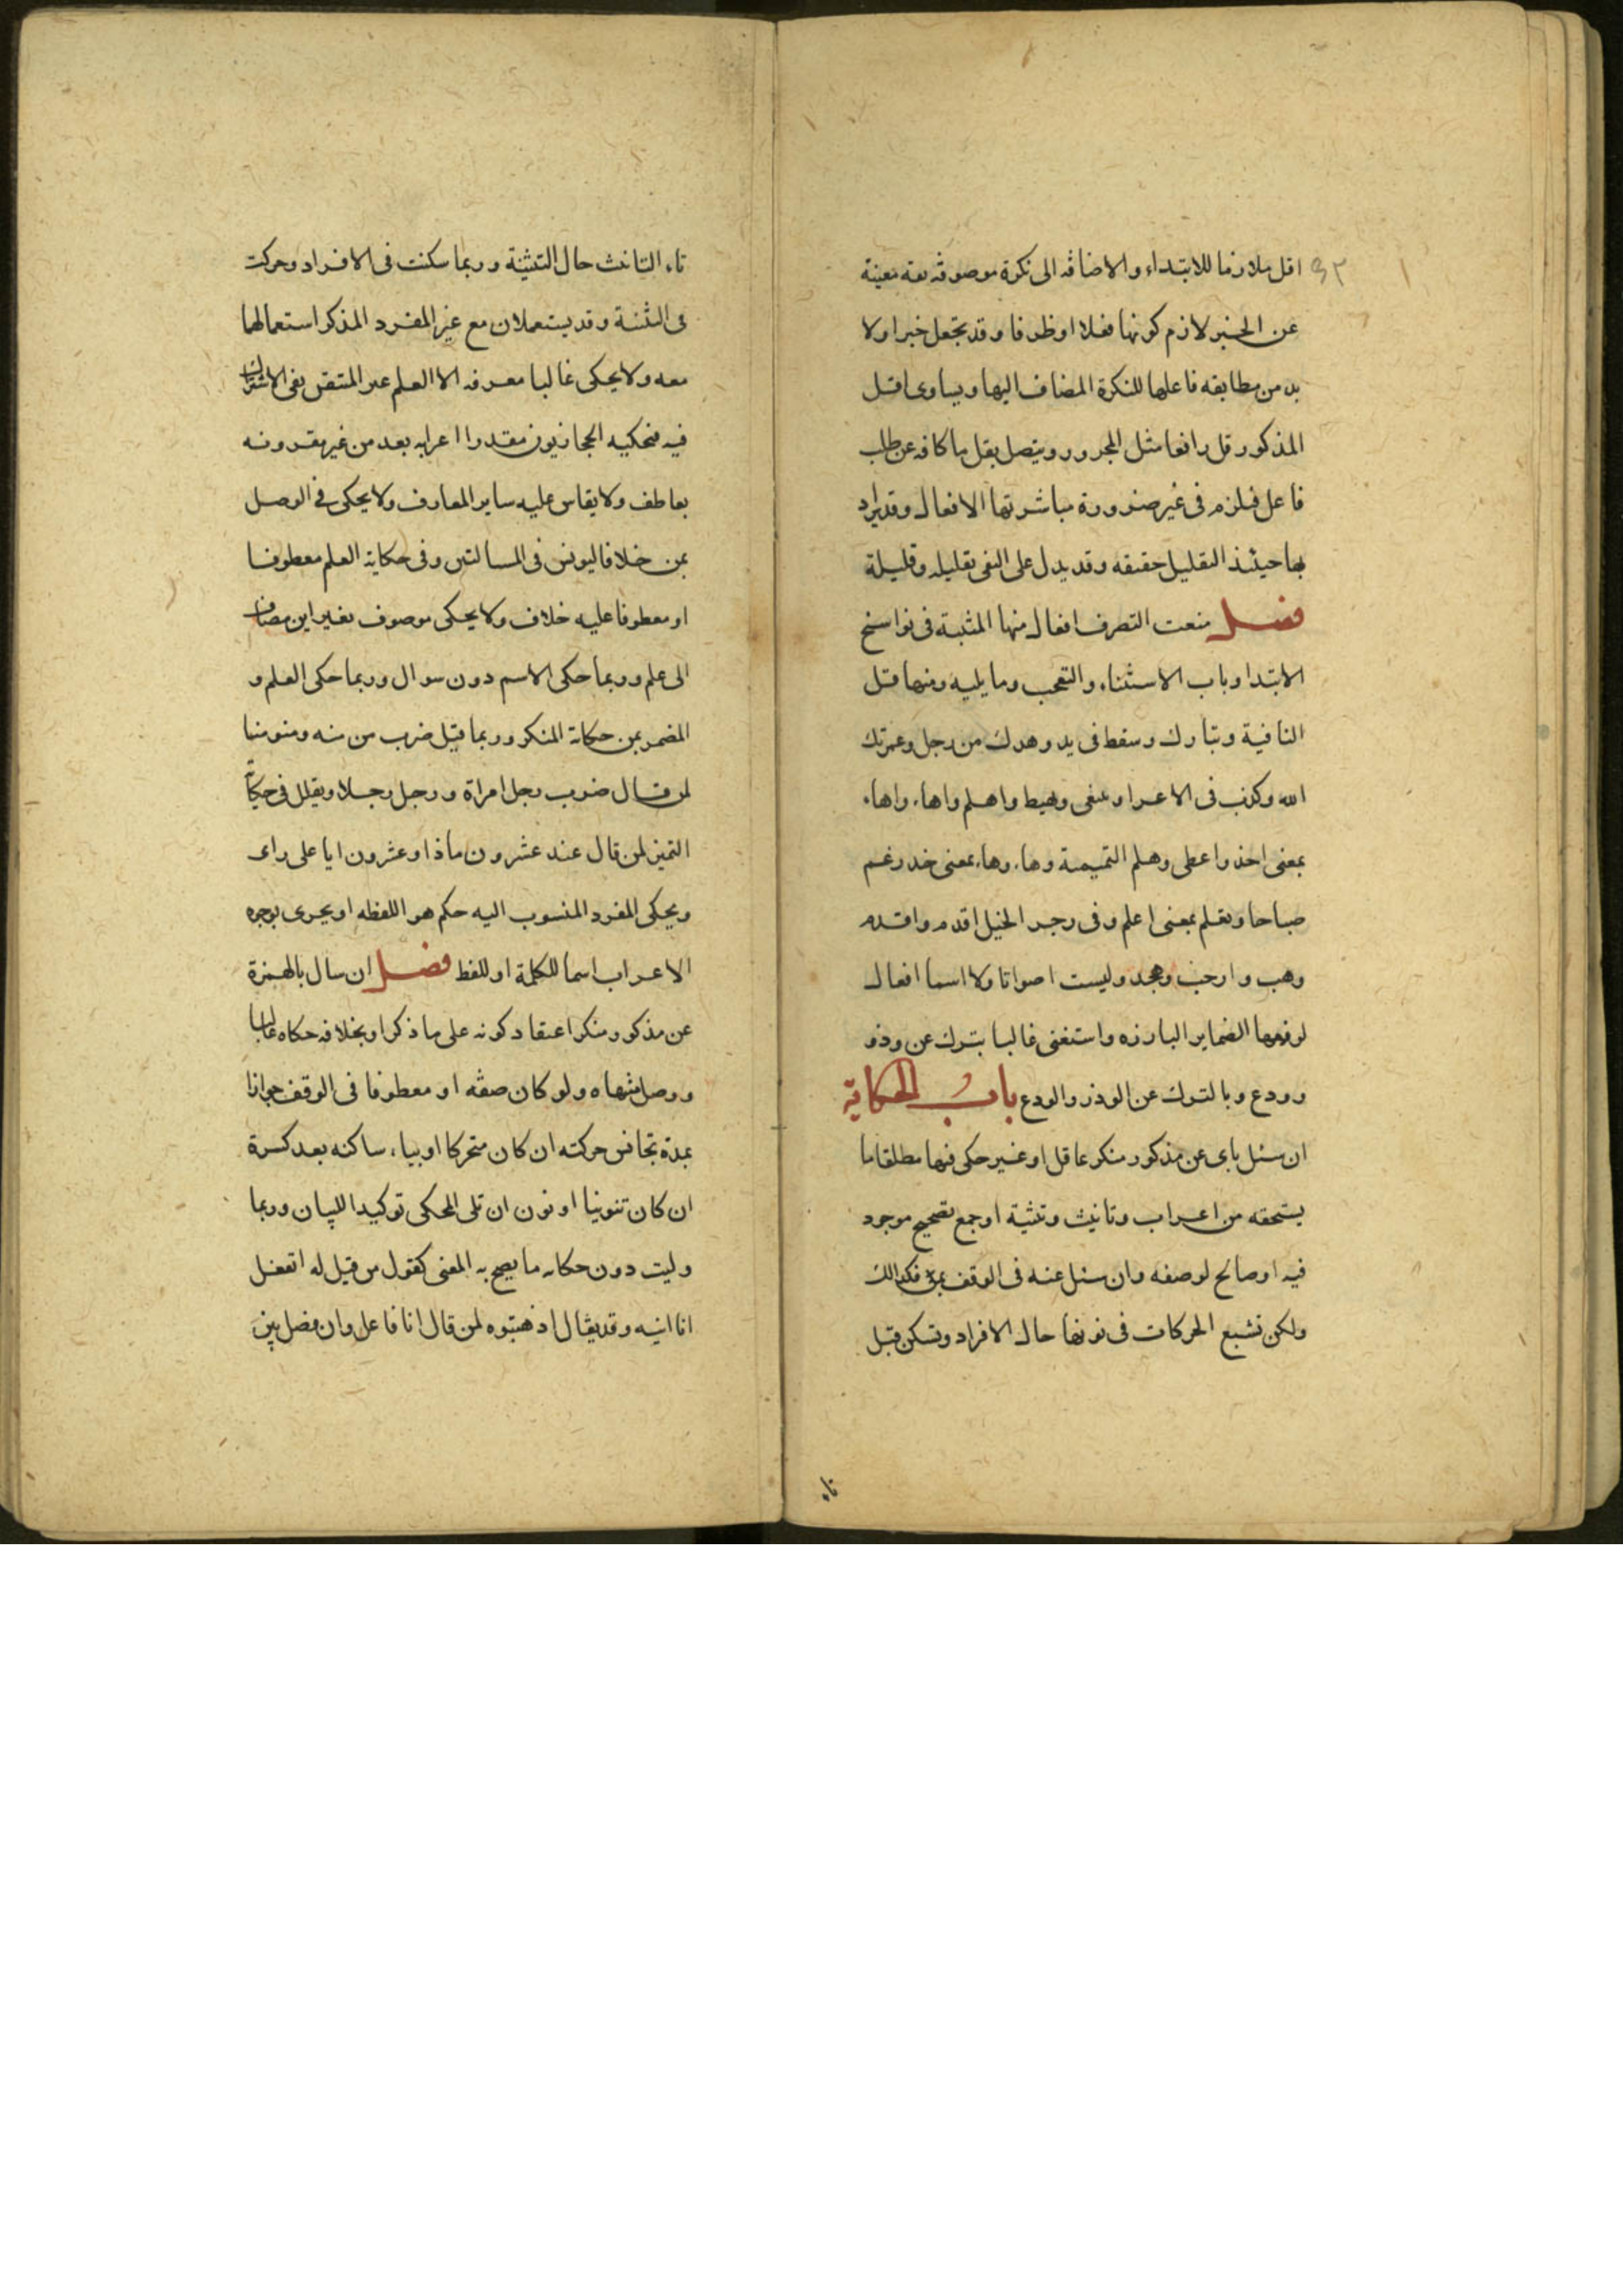 اقل ملازما للابتداء والاضافه الى نكرة موصوفه بصفه مغنية
عن الخبر لازم كونها فعلا او ظرفا وقد تجعل خبرا ولا
بد من مطابقه فاعلها للنكرة المضاف اليها ويساوى اقل
المذكور قل رافعا مثل المجرور ويتصل بقل ما كافه عن طلب
فاعل فيلزم فى غير ضرورة مباشرتها الافعال وقد يراد
بها حينئذ التقليل حقيقه وقد يدل على النفى بقليل وقليلة
فصل منعت التصرف افعال منها المثبتة فى نواسخ
الابتدا وباب الاستثناء والتعجب وما يليه ومنها قل
النافية وتبارك وسقط فى يد وهدك من رجل وعمرتك
الله وكذب فى الاغرا وينبغى ويهيط واهلم واهاء واهاء
بمعنى اخذ واعطى وهلم التميمية وهاء وهاء بمعنى خذ وعم
صباحا وتعلم بمعنى اعلم وفى زجر الخيل اقدم واقدم
وهب وارحب وهجد وليست اصواتا ولا اسما افعال
لرفعها الضماير البارزه واستغنى غالبا بترك عن وذر
وودع وبالترك عن الوذر والودع باب الحكاية
ان سئل باى عن مذكور منكر عاقل او غير حكى فيها مطلقا ما
يستحقه من اعراب وتانيث وتثنية او جمع تصحيح موجود
فيه او صالح لوصفه وان سئل عنه فى الوقف بمن فكذالك
ولكن تشبع الحركات فى نونها حال الافراد وتسكن قبل
تاء
تاء التانيث حال التثنية وربما سكنت فى الافراد وحركت
فى التثنية وقد يستعملان مع غير المفرد المذكر استعمالهما
معه ولا يحكى غالبا معرفه الا العلم غير المتيقن نفى الاشتراك
فيه فيحكيه الحجازيون مقدرا اعرابه بعد من غير مقرونه
بعاطف ولا يقاس عليه ساير المعارف ولا يحكى فى الوصل
بمن خلافا ليونس فى المسالتين وفى حكاية العلم معطوفا
او معطوفا عليه خلاف ولا يحكى موصوف بغير ابن مضاف
الى علم وربما حكى الاسم دون سوال وربما حكى العلم و
المضمر بمن حكاية المنكر وربما قيل ضرب من منه ومنو منا
لمن قال ضرب رجل امراة ورجل رجلا ويقال فى حكاية
التميز لمن قال عند عشرون ماذا وعشرون ايا على راى
ويحكى المفرد المنسوب اليه حكم هو اللفظه او يجرى بوجوه
الاعراب اسما للكلمة او للفظ فصل ان سال بالهمزة
عن مذكور منكر اعتقاد كونه على ما ذكر او بخلافه حكاه غالبا
ووصل منتهاه ولو كان صفه او معطوفا فى الوقف جوازا
بمدة تجانس حركته ان كان متحركا او بياء ساكنه بعد كسرة
ان كان تنوينا او نون ان تلى المحكى توكيدا للبيان وربما
وليت دون حكايه ما يصح به المعنى كقول من قيل له اتفعل
انا انيه وقد يقال اذهبتوه لمن قال انا فاعل وان فصل بين